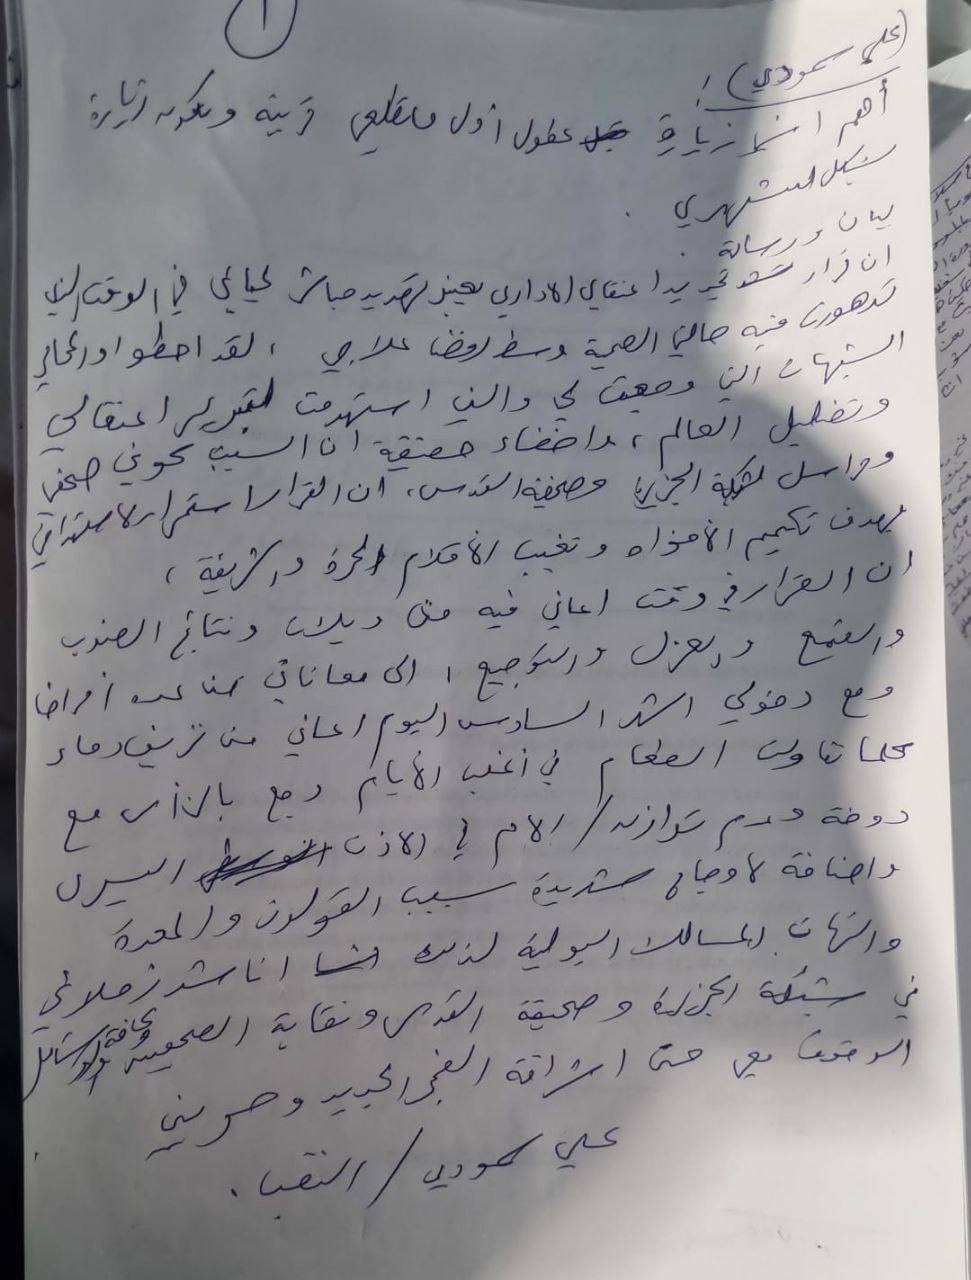 ١
(علي سمودي) :
أهم اشي زيارة عطول أول ما تطلعي قريبة ويكون زيارة
بشكل شهري .
بيان ورسالة .
ان قرار تجديد اعتقالي الاداري يعتبر تهديد مباشر لحياتي في الوقت الذي
تدهورت فيه حالتي الصحية وسط رفض علاجي ،
الشبهات التي وجهت لي والتي استهدفت تبرير اعتقالي
وتضليل العالم ، واخفاء حقيقة ان السبب كوني صحفي
ومراسل لشبكة الجزيرة وصحيفة القدس ، ان القرار استمرار لاستهدافي
بهدف تكميم الأفواه وتغييب الأقلام الحرة والشريفة ،
ان القرار في وقت اعاني فيه من ويلات ونتائج الضرب
والقمع والعزل والتجويع ، الى معاناتي من عدة أمراض
ومع دخولي الشهر السادس اليوم اعاني من نزيف دماء
كلما تناولت الطعام في أغلب الأيام وجع بالرأس مع
دوخة وعدم توازن / الام في الاذن اليسرى
واضافة لأوجاع شديدة بسبب القولون والمعدة
والتهاب المسالك البولية لذلك انا اناشد زملائي
في شبكة الجزيرة وصحيفة القدس ونقابة الصحفيين وكافة
الوقوف معي حتى اشراقة الفجر الجديد وحريتي
علي سمودي / النقب .